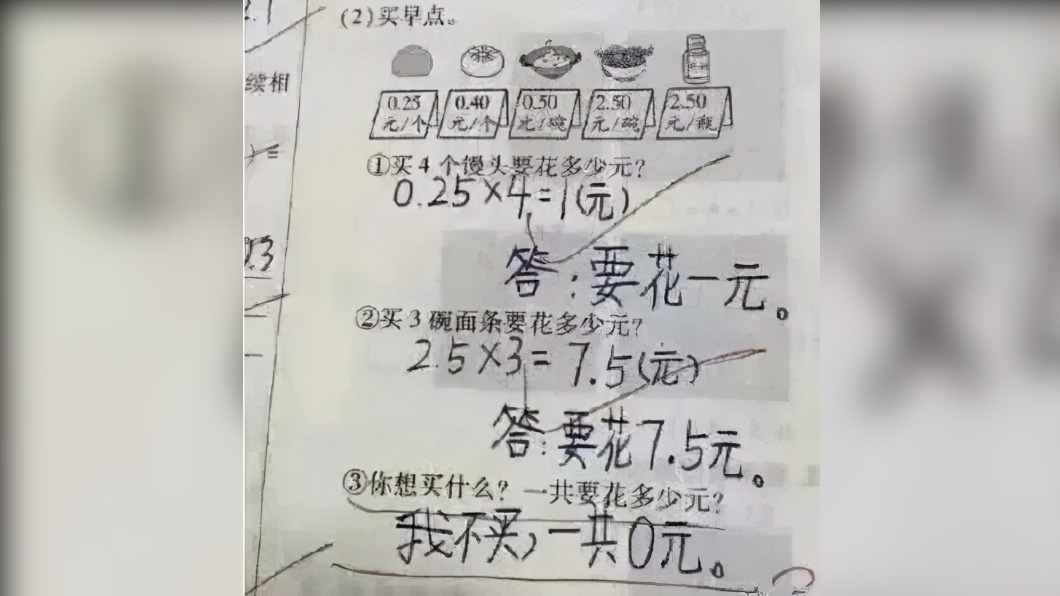 2.1
续相
)=
(2)买早点。
0.25 0.40 0.50 2.50 2.50
元/个 元/个 元/碗 元/碗 元/瓶
①买 4 个馒头要花多少元?
0.25×4=1(元)
答:要花一元。
②买 3 碗面条要花多少元?
2.5×3=7.5(元)
答:要花7.5元。
③你想买什么? 一共要花多少元?
我不买,一共0元。